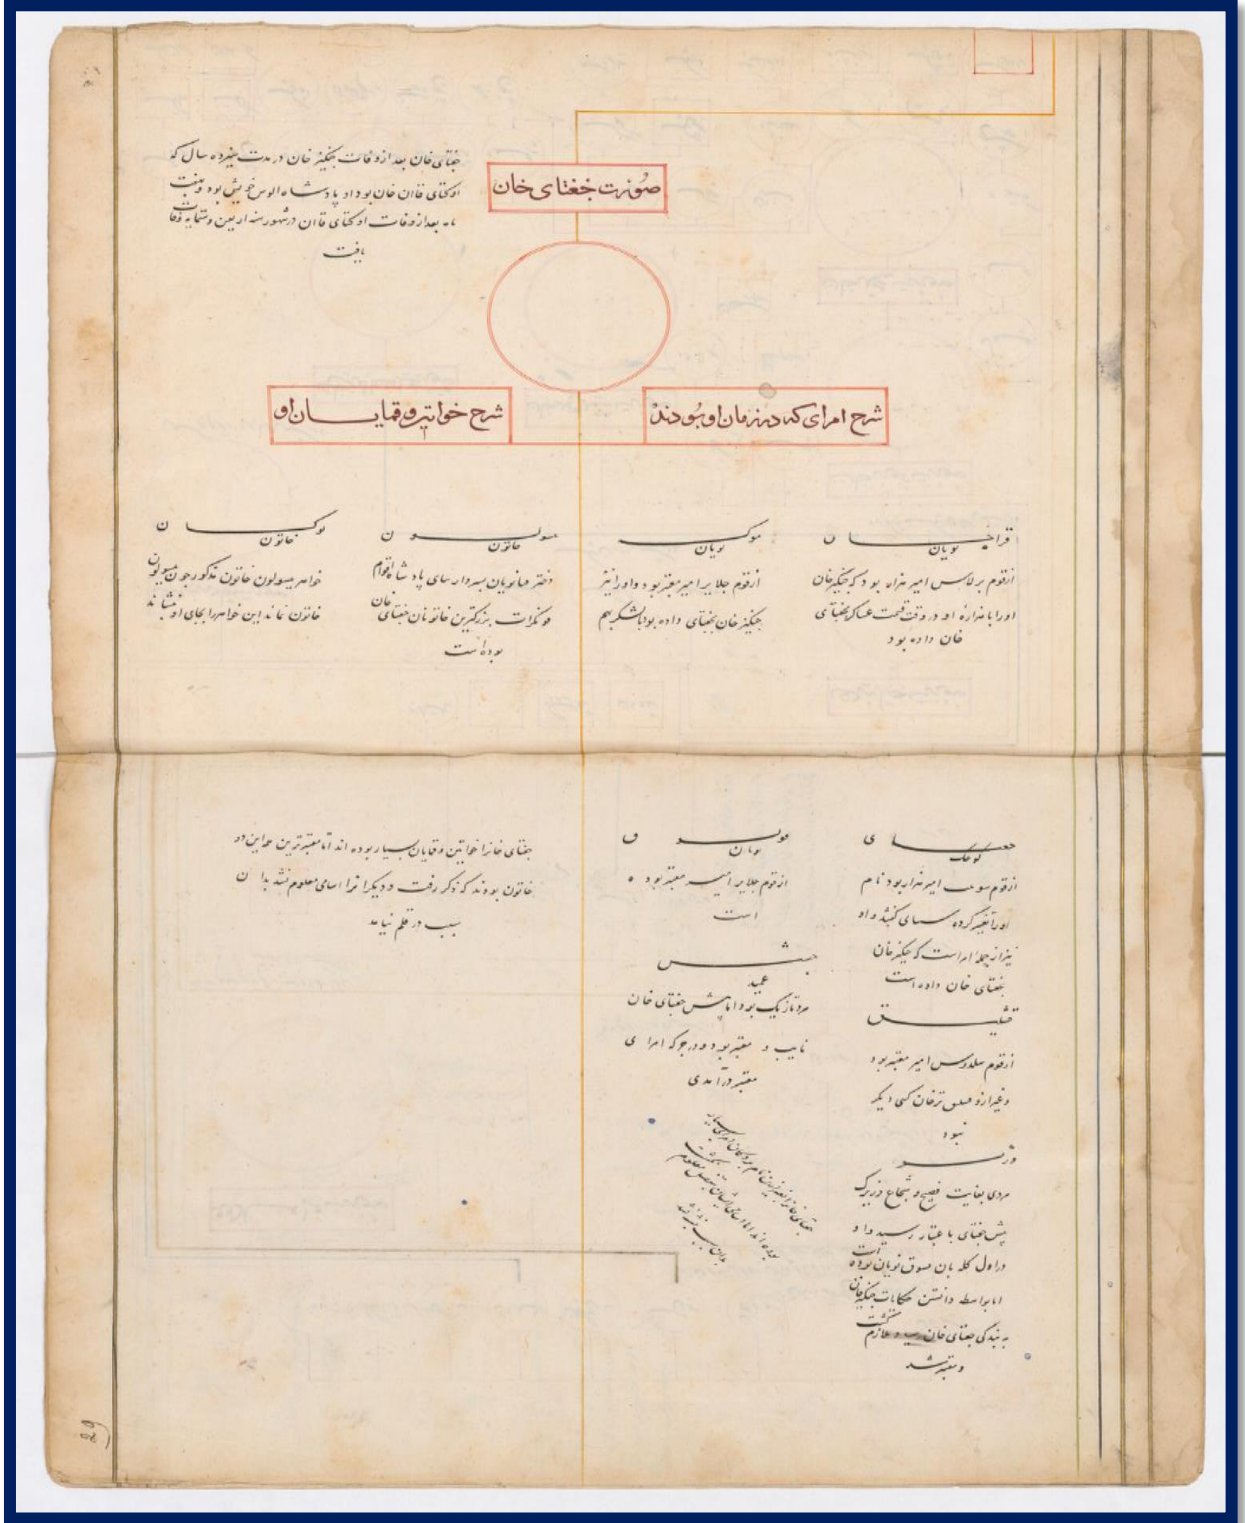 جغتای خان بعد از وفات چنگیز خان در مدت سیزده سال که
اوکتای قاان خان بود او پادشاه الوس خویش بود و هفت
ماه بعد از وفات اوکتای قاان در شهور سنه اربعین و ستمایه وفات
یافت
صورت جغتای خان
شرح امرای که در زمان او بودند
شرح خواتین و قمایان او
قراجان
نویان
از قوم برلاس امیر هزاره بود که چنگیز خان
او را با هزارهٔ او در وقت قسمت عساکر بجغتای
خان داده بود
موکه
نویان
از قوم جلایر امیر معتبر بود و او را نیز
چنگیز خان بجغتای داده بود با لشکر بهم
خاتون
دختر نویان پسر پادشاه اقوام
قونکرات بزرگترین خاتونان جغتای خان
بوده است
توکان
خاتون
خواهر ییسولون خاتون مذکور چون ییسولون
خاتون نماند این خواهر را بجای او بنشاند
جغتای
کوچک
از قوم امیر هزار بود نام
او را تغییر کرده کفتند و او
نیز از جملهٔ امراست که چنگیز خان
بجغتای خان داده است
قشلیق
از قوم سلدوس امیر معتبر بود
و غیر از و ترخان کسی دیکر
نبود
وزیر
مردی بغایت فصیح و شجاع و زیرک
پیش جغتای باعتبار رسید و او
در اول کله بان نویان بوده است
اما بواسطه دانستن حکایات چنگیز خان
به بندکی جغتای خان ملازم کشت
و معتبر شد
نویان
از قوم جلایر امیر معتبر بوده
است
حبش
عمید
مرد تازیک بود اما پیش جغتای خان
نایب و معتبر بود و در جرکه امرای
معتبر در آمدی
جغتای خانرا بغیر ازین نام بردکان امرای بسیار
بوده اند اما اسامی ایشان بتفصیل معلوم نکشت
بدان سبب نوشته نشد
جغتای خانرا خواتین و قمایان بسیار بوده اند اما معتبرترین همه این دو
خاتون بودند که ذکر رفت و دیکرانرا اسامی معلوم نشد بدان
سبب در قلم نیامد
29